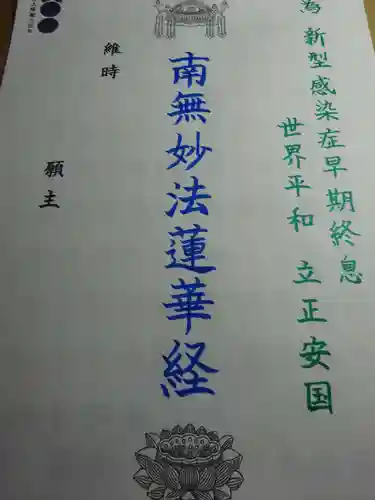 為 新型感染症早期終息
世界平和 立正安国
南無妙法蓮華経
維時
願主